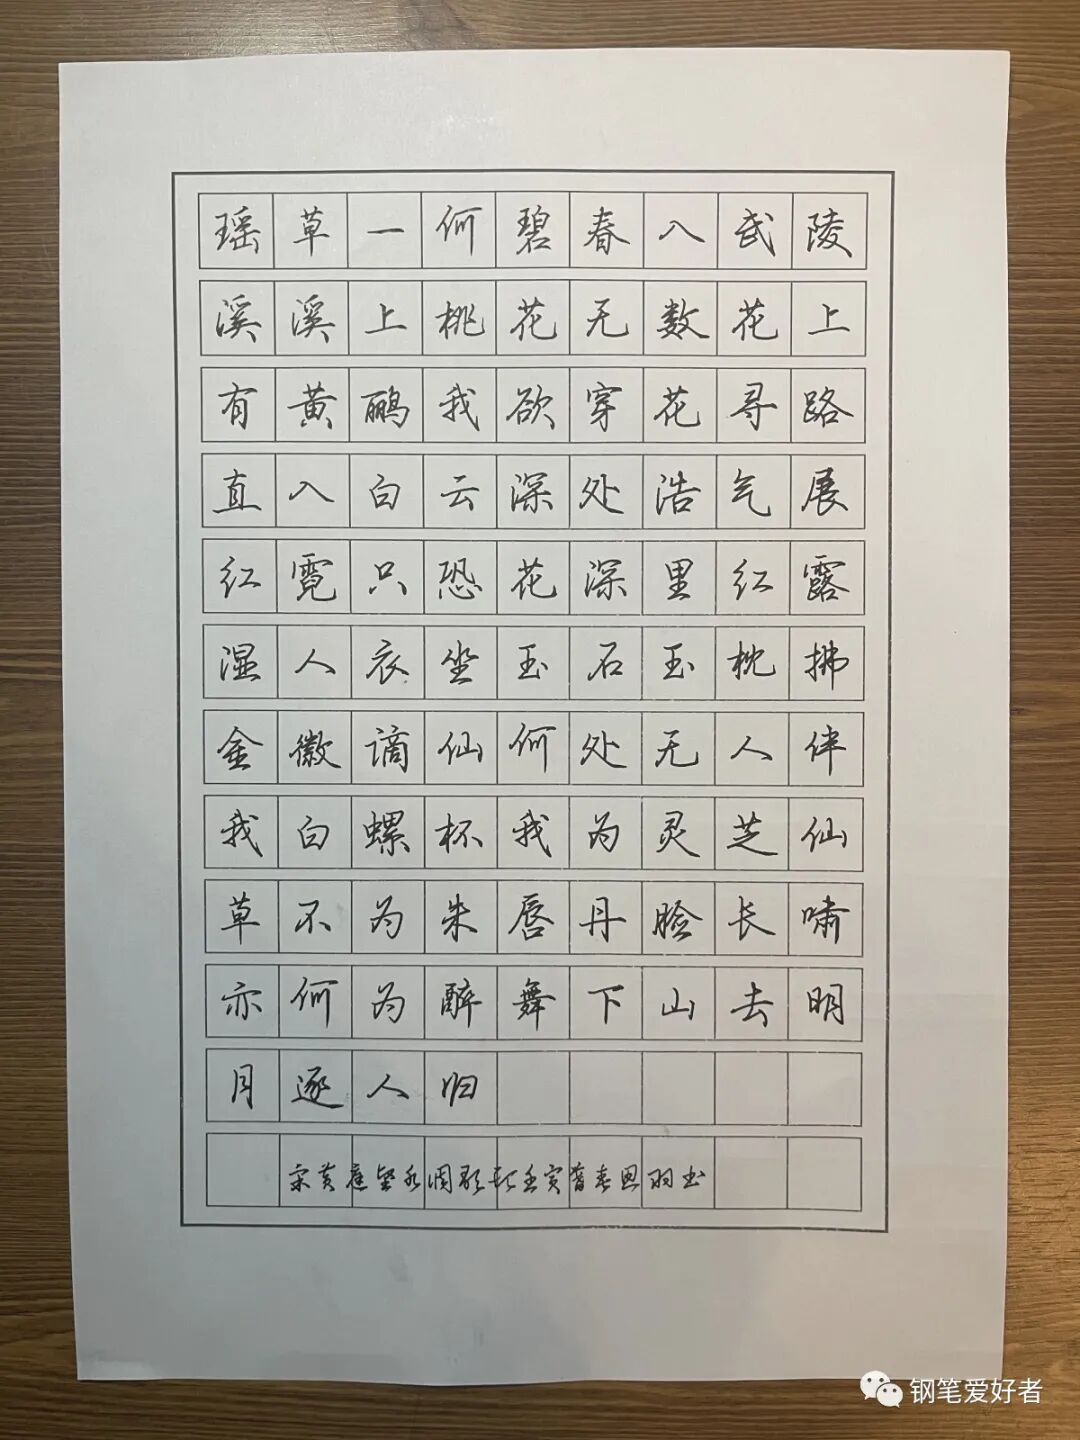 瑶草一何碧春入武陵
溪溪上桃花无数花上
有黄鹂我欲穿花寻路
直入白云深处浩气展
红霓只恐花深里红露
湿人衣坐玉石玉枕拂
金徽谪仙何处无人伴
我白螺杯我为灵芝仙
草不为朱唇丹脸长啸
亦何为醉舞下山去明
月逐人归
宋黄庭坚水调歌头壬寅暮春恩羽书
钢笔爱好者